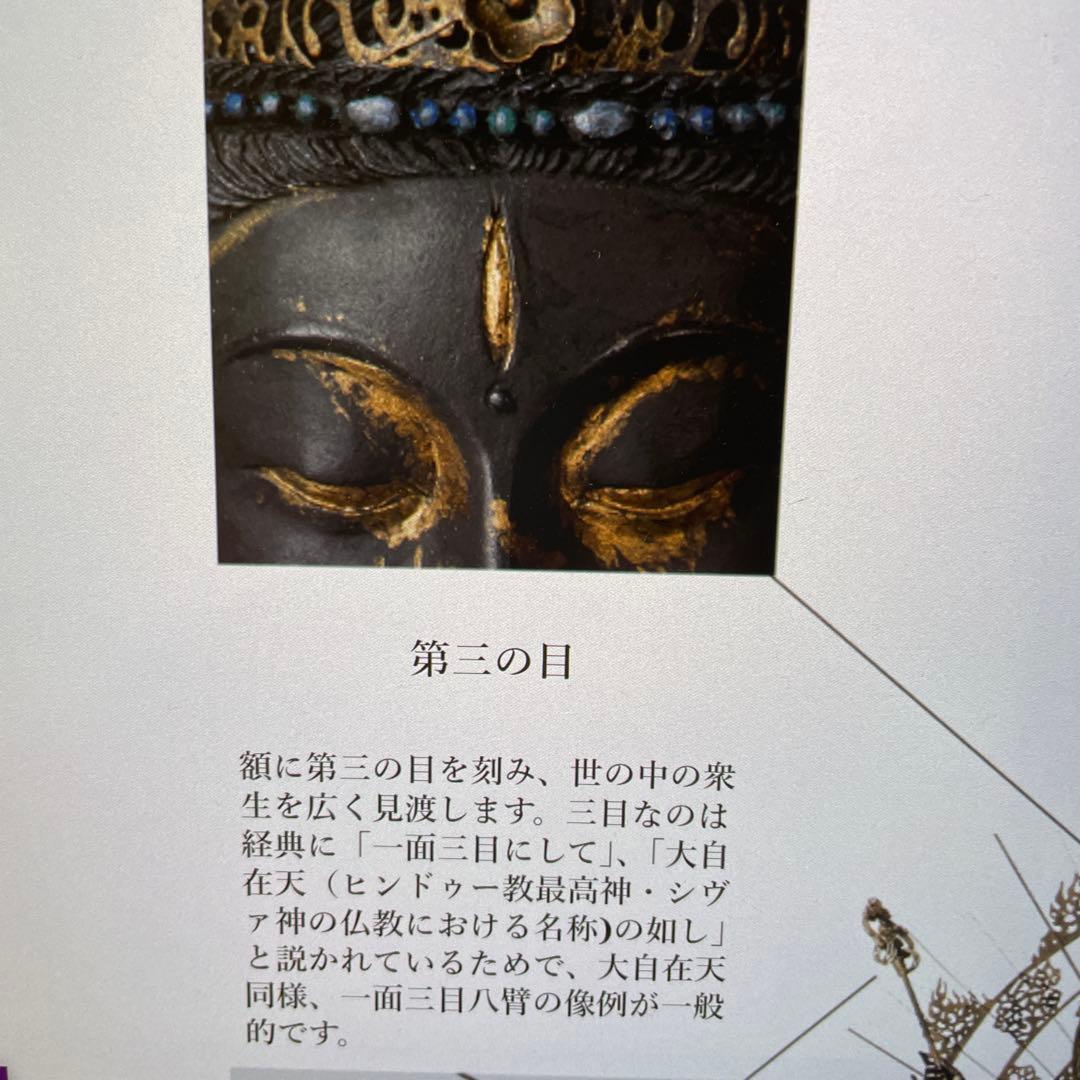 第三の目
額に第三の目を刻み、世の中の衆
生を広く見渡します。三目なのは
経典に「一面三目にして」、「大自
在天（ヒンドゥー教最高神・シヴ
ァ神の仏教における名称)の如し」
と説かれているためで、大自在天
同様、一面三目八臂の像例が一般
的です。